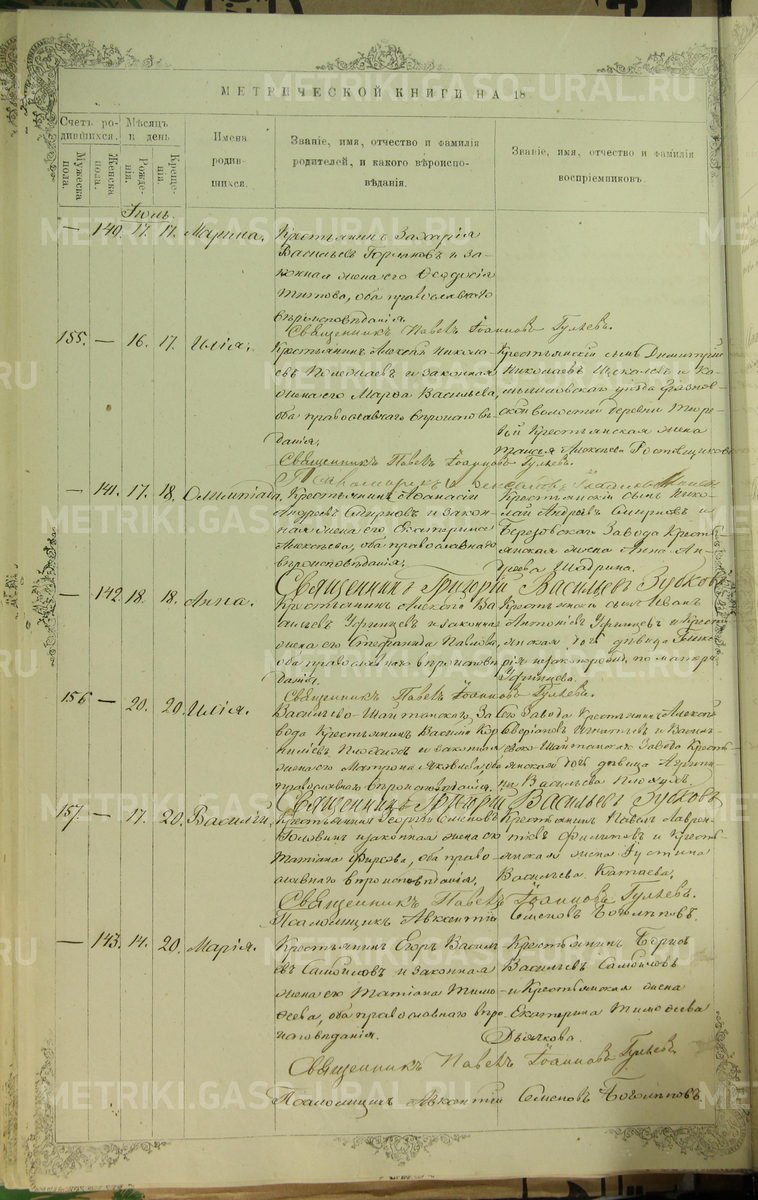 МЕТРИЧЕСКОЙ КНИГИ НА 18
Счетъ родившихся.
Мужеска пола.
Женска пола.
Мѣсяцъ и день
Рожденія.
Крещенія.
Имена родившихся.
Званіе, имя, отчество и фамилія родителей, и какого вѣроисповѣданія.
Званіе, имя, отчество и фамилія воспріемниковъ.
Іюль.
— 140. 17. 17. Марина.
Крестьянинъ Захарія
Васильевъ и за-
конная жена его Ѳеодосія
Титова, оба православнаго
вѣроисповѣданія.
Священникъ Павелъ Іоанновъ Гуляевъ.
155. — 16. 17. Илія.
Крестьянинъ Алексѣй Никола-
евъ и законная
жена его Марѳа Васильева,
оба православнаго вѣроисповѣ-
данія.
Крестьянскій сынъ Димитрій
Николаевъ и Ка-
мышловскаго уѣзда
ской волости деревни
Крестьянская жена
Таисья Алексѣева
Священникъ Павелъ Іоанновъ Гуляевъ.
— 141. 17. 18. Олимпіада.
Крестьянинъ Аѳанасій
Андреевъ Смирновъ и закон-
ная жена его Екатерина
Алексѣева, оба православнаго
вѣроисповѣданія.
Крестьянскій сынъ Нико-
лай Андреевъ Смирновъ и
Березовскаго Завода Кресть-
янская жена Анна Ан-
дреева Шадрина.
Священникъ Григорій Васильевъ Зубковъ
— 142. 18. 18. Анна.
Крестьянинъ Алексѣй Ва-
сильевъ и законная
жена его Стефанида Павлова,
оба православнаго вѣроисповѣ-
данія.
Крестьянскій сынъ Иванъ
Антоновъ и Кресть-
янская дочь дѣвица
Священникъ Павелъ Іоанновъ Гуляевъ.
156 — 20. 20. Илія.
Васильево-Шайтанскаго За-
вода Крестьянинъ Василій Кор-
ниліевъ Плохихъ и законная
жена его Матрона Яковлева, оба
православнаго вѣроисповѣданія.
Завода Крестьянинъ Алексѣй
Игнатьевъ и Василь-
ево-Шайтанскаго Завода Кресть-
янская дочь дѣвица Ирин-
на Васильева Плохихъ.
Священникъ Григорій Васильевъ Зубковъ
157. — 17. 20. Василій.
Крестьянинъ Георгій Семеновъ
Головинъ и законная жена его
Татіана Фирсова, оба право-
славнаго вѣроисповѣданія.
Крестьянинъ Павелъ Лаврен-
тьевъ Филиповъ и Кресть-
янская жена Іустина
Васильева Катаева.
Священникъ Павелъ Іоанновъ Гуляевъ.
Псаломщикъ Авксентій Семеновъ Боголѣповъ.
— 143. 14. 20. Марія.
Крестьянинъ Егоръ Василь-
евъ Самойловъ и законная
жена его Татіана Тимо-
ѳеева, оба православнаго вѣро-
исповѣданія.
Крестьянинъ Борисъ
Васильевъ Самойловъ
и Крестьянская жена
Екатерина Тимоѳеева
Дьячкова.
Священникъ Павелъ Іоанновъ Гуляевъ
Псаломщикъ Авксентій Семеновъ Боголѣповъ
METRIKI.GASO-URAL.RU